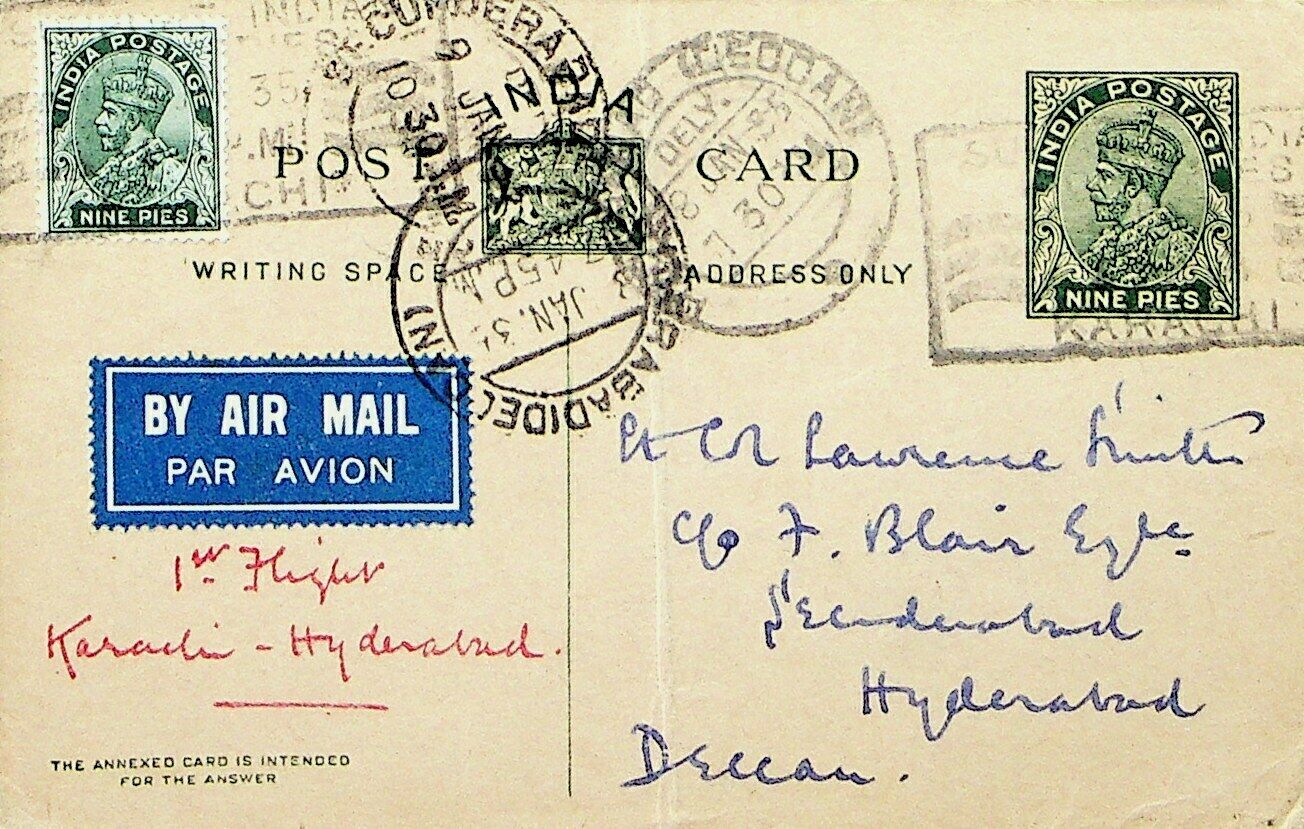 INDIA POSTAGE
NINE PIES
SECUNDERABAD
9 JAN.
10 30
INDIA
POST CARD
WRITING SPACE
ADDRESS ONLY
(DECCAN)
DELY.
8 JAN 35
7 30
7.45P.M
8 JAN. 35
INDIA POSTAGE
NINE PIES
KARACHI
BY AIR MAIL
PAR AVION
1st Flight
Karachi - Hyderabad.
THE ANNEXED CARD IS INTENDED
FOR THE ANSWER
Lt Col Lawrence Smith
c/o F. Blair Esqre
Secunderabad
Hyderabad
Deccan.